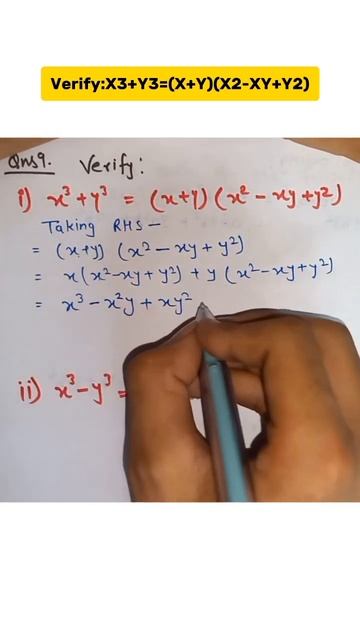 Verify:X3+Y3=(X+Y)(X2-XY+Y2)
Qns9. Verify:
i) x³+y³ = (x+y) (x²-xy+y²)
Taking RHS -
= (x+y) (x²-xy+y²)
= x(x²-xy+y²) + y(x²-xy+y²)
= x³-x²y+xy²
ii) x³-y³ =